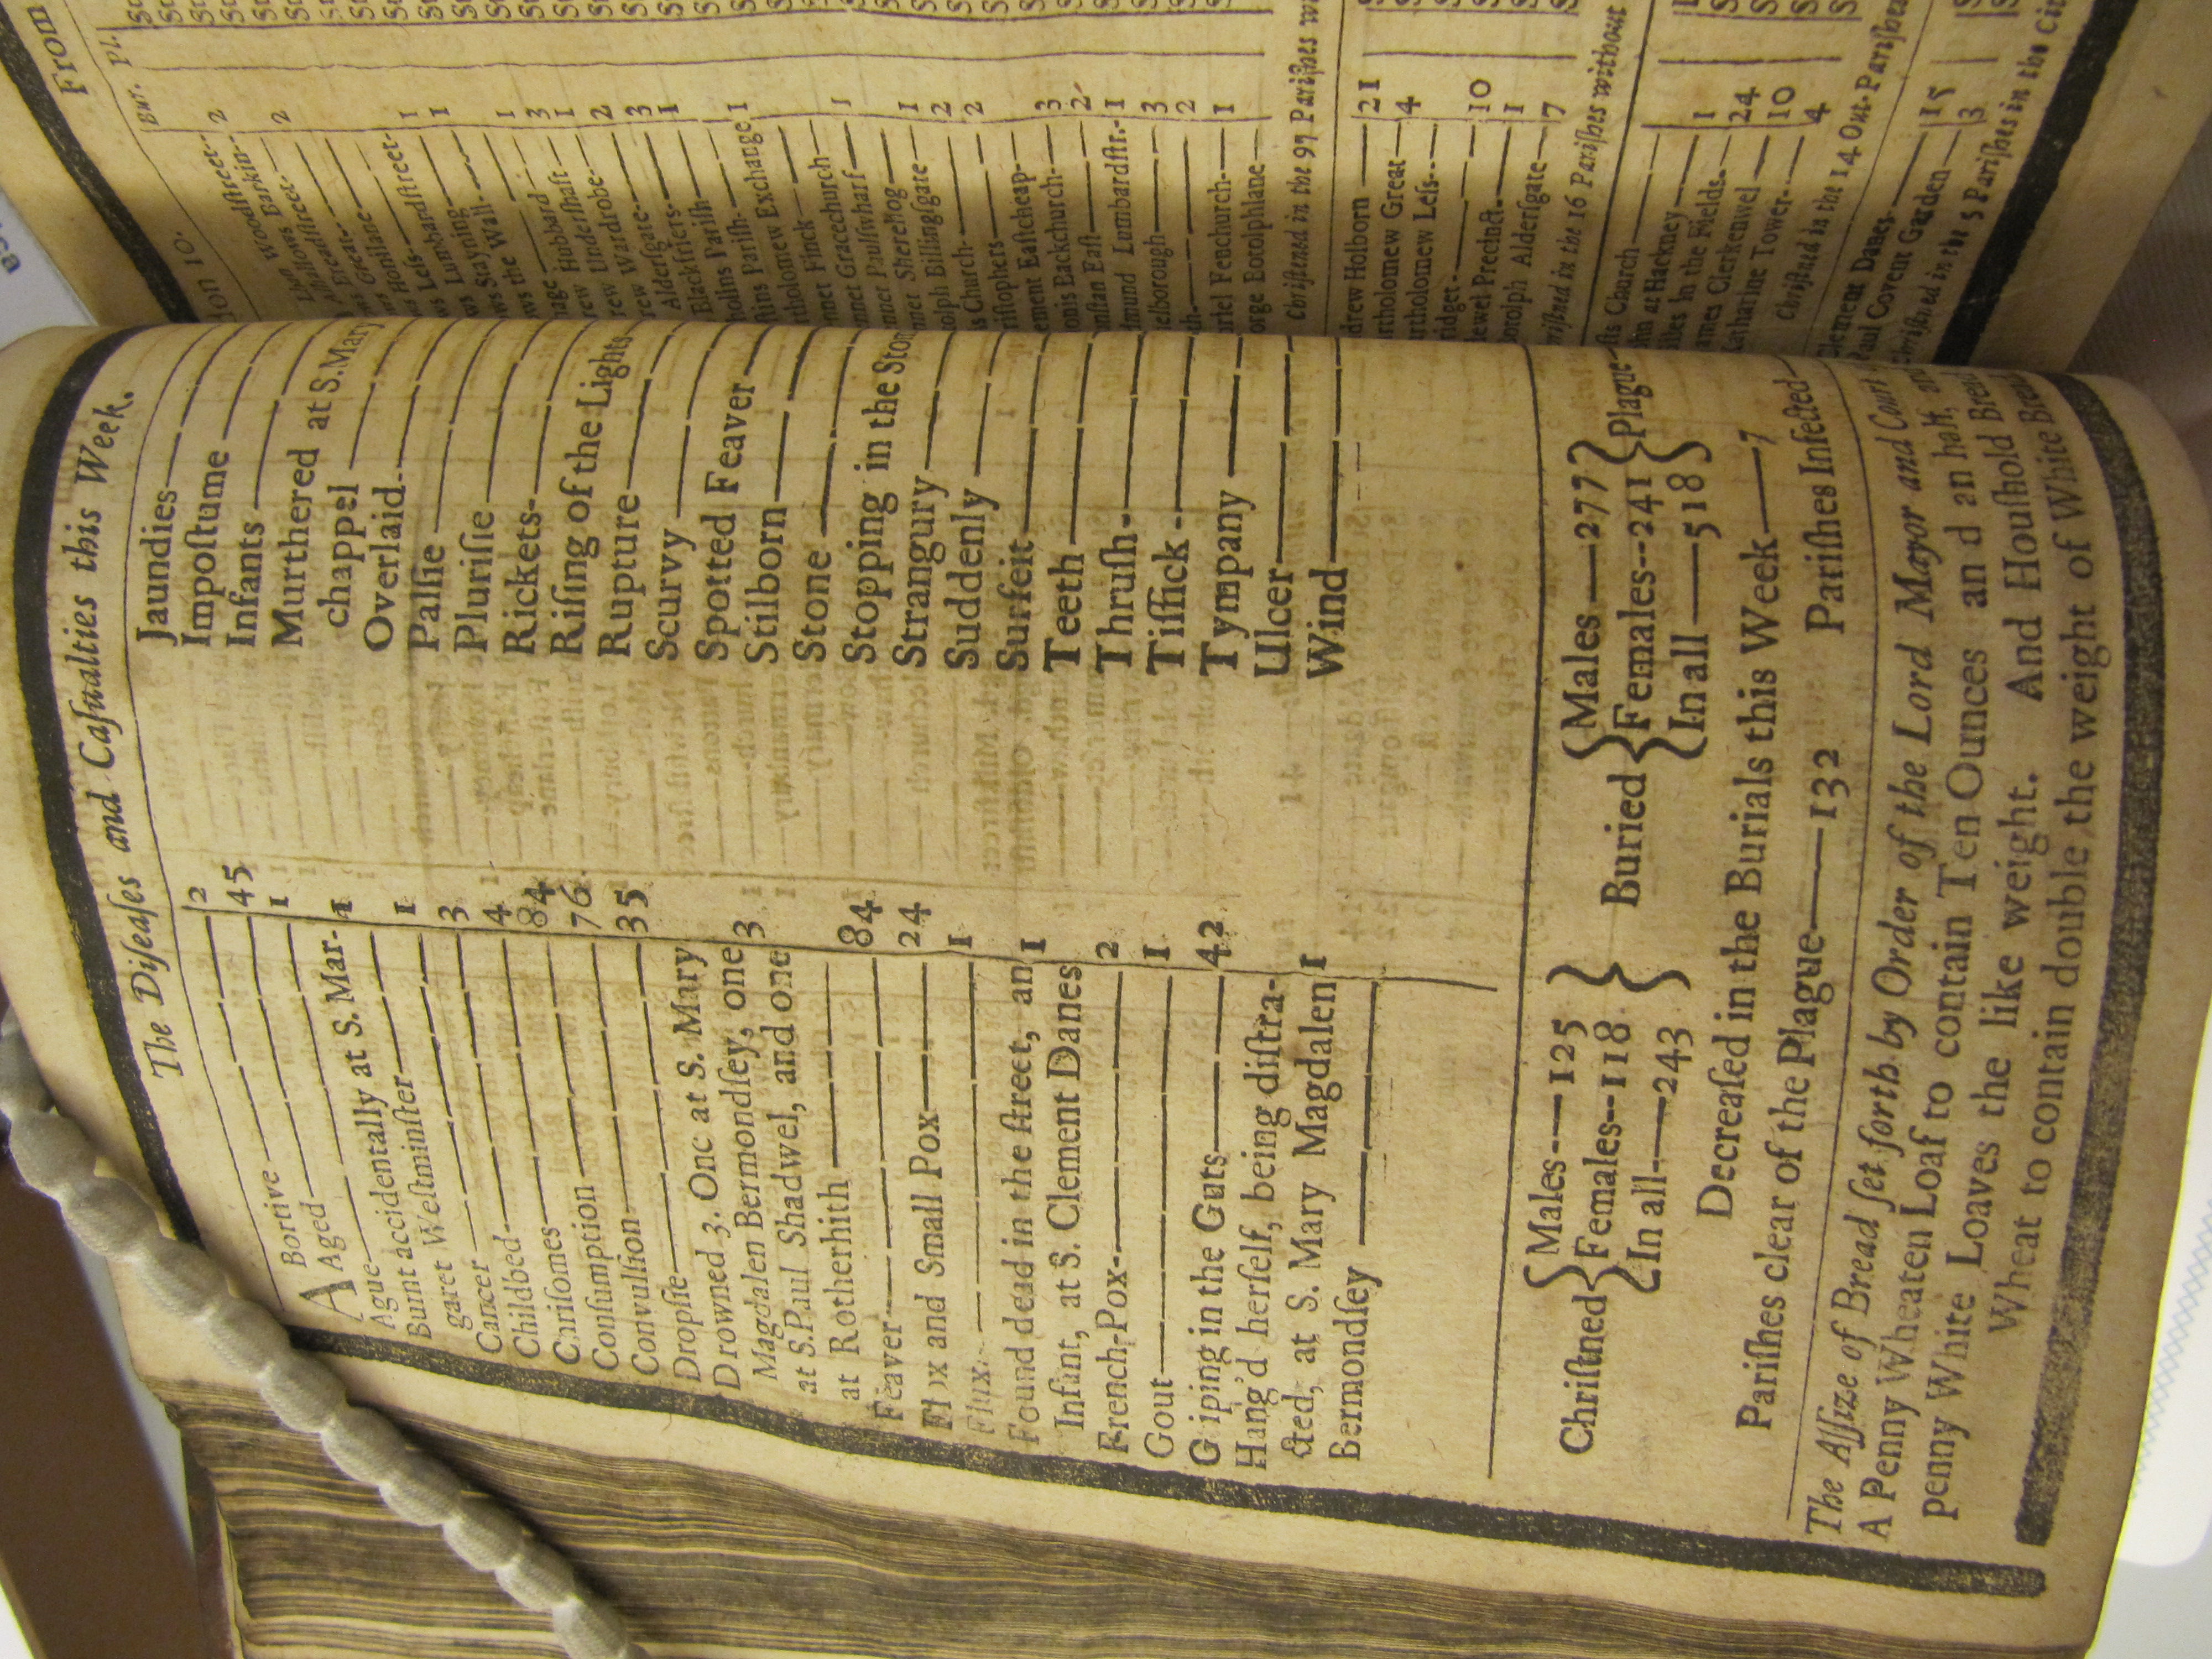 The Diſeaſes and Caſualties this Week.
Abortive — 2
Aged — 45
Ague — 1
Burnt accidentally at S. Mar-
garet Weſtminſter — 1
Cancer — 1
Childbed — 3
Chriſomes — 4
Conſumption — 84
Convulſion — 76
Dropſie — 35
Drowned 3. One at S. Mary
Magdalen Bermondſey, one
at S. Paul Shadwel, and one
at Rotherhith — 3
Feaver — 84
Flox and Small Pox — 24
Flux — 1
Found dead in the ſtreet, an
Infant, at S. Clement Danes — 1
French-Pox — 2
Gout — 1
Griping in the Guts — 42
Hang'd herſelf, being diſtra-
cted, at S. Mary Magdalen
Bermondſey — 1
Jaundies
Impoſtume
Infants
Murthered at S. Mary
chappel
Overlaid
Palſie
Pluriſie
Rickets
Riſing of the Lights
Rupture
Scurvy
Spotted Feaver
Stilborn
Stone
Stopping in the Stom
Strangury
Suddenly
Surfeit
Teeth
Thruſh
Tiſſick
Tympany
Ulcer
Wind
Chriſtned { Males — 125 Females — 118 In all — 243 }
Buried { Males — 277 Females — 241 In all — 518 } Plague
Decreaſed in the Burials this Week — 7
Pariſhes clear of the Plague — 132 Pariſhes Infected
The Aſſize of Bread ſet forth by Order of the Lord Mayor and Court
A Penny Wheaten Loaf to contain Ten Ounces and an half, and
penny White Loaves the like weight. And Houſhold Bread
Wheat to contain double the weight of White Bread
From
Bur. Pl.
Woodſtreet — 2
Barkin — 2
Breadſtreet
Great
Honilane
Leſs
Lumbardſtreet — 1
Stayning — 1
the Wall
Hubbard — 3
Underſhaft — 1
Wardrobe — 2
Alderſgate — 3
Blackfriers — 1
Pariſh
Exchange 1
Finck
Gracechurch — 1
Paulſwharf
Sherehog — 1
Billingſgate — 2
Church — 2
Eaſtcheap
Backchurch — 3
Eaſt — 2
Lumbardſtr. — 1
3
2
Fenchurch — 1
Botolphlane
Chriſtned in the 97 Pariſhes wi
drew Holborn — 21
artholomew Great — 4
artholomew Leſs
ridget — 10
dewel Precinct — 1
otolph Alderſgate — 7
riſtned in the 16 Pariſhes without
Church
at Hackney — 1
iles in the Fields — 24
ames Clerkenwel — 10
atharine Tower — 4
Chriſtned in the 14 Out-Pariſhes
Clement Danes — 15
Paul Covent Garden — 3
Chriſtned in the 5 Pariſhes in the Cit